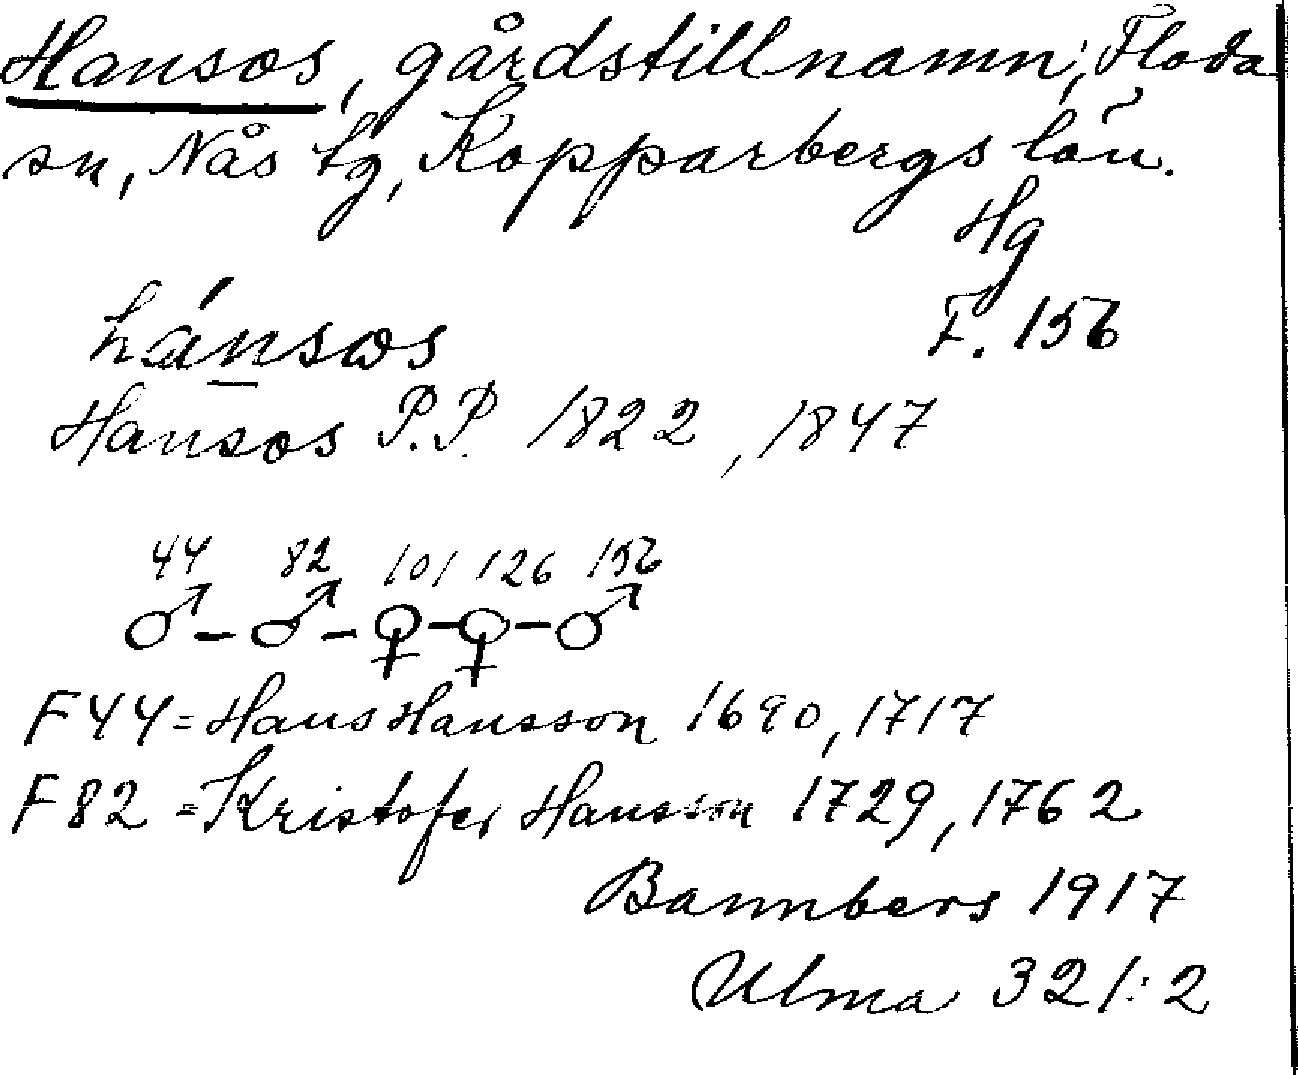 Hansos, gårdstillnamn, Floda
sn, Nås tg, Kopparbergs län.
Hg
F. 156
hánsɷs
Hansos P.P. 1822, 1847
44 82 101 126 156
♂ – ♂ – ♀ – ♀ – ♂
F44 = Hans Hansson 1690, 1717
F82 = Kristofer Hansson 1729, 1762
Bannbers 1917
Ulma 321:2